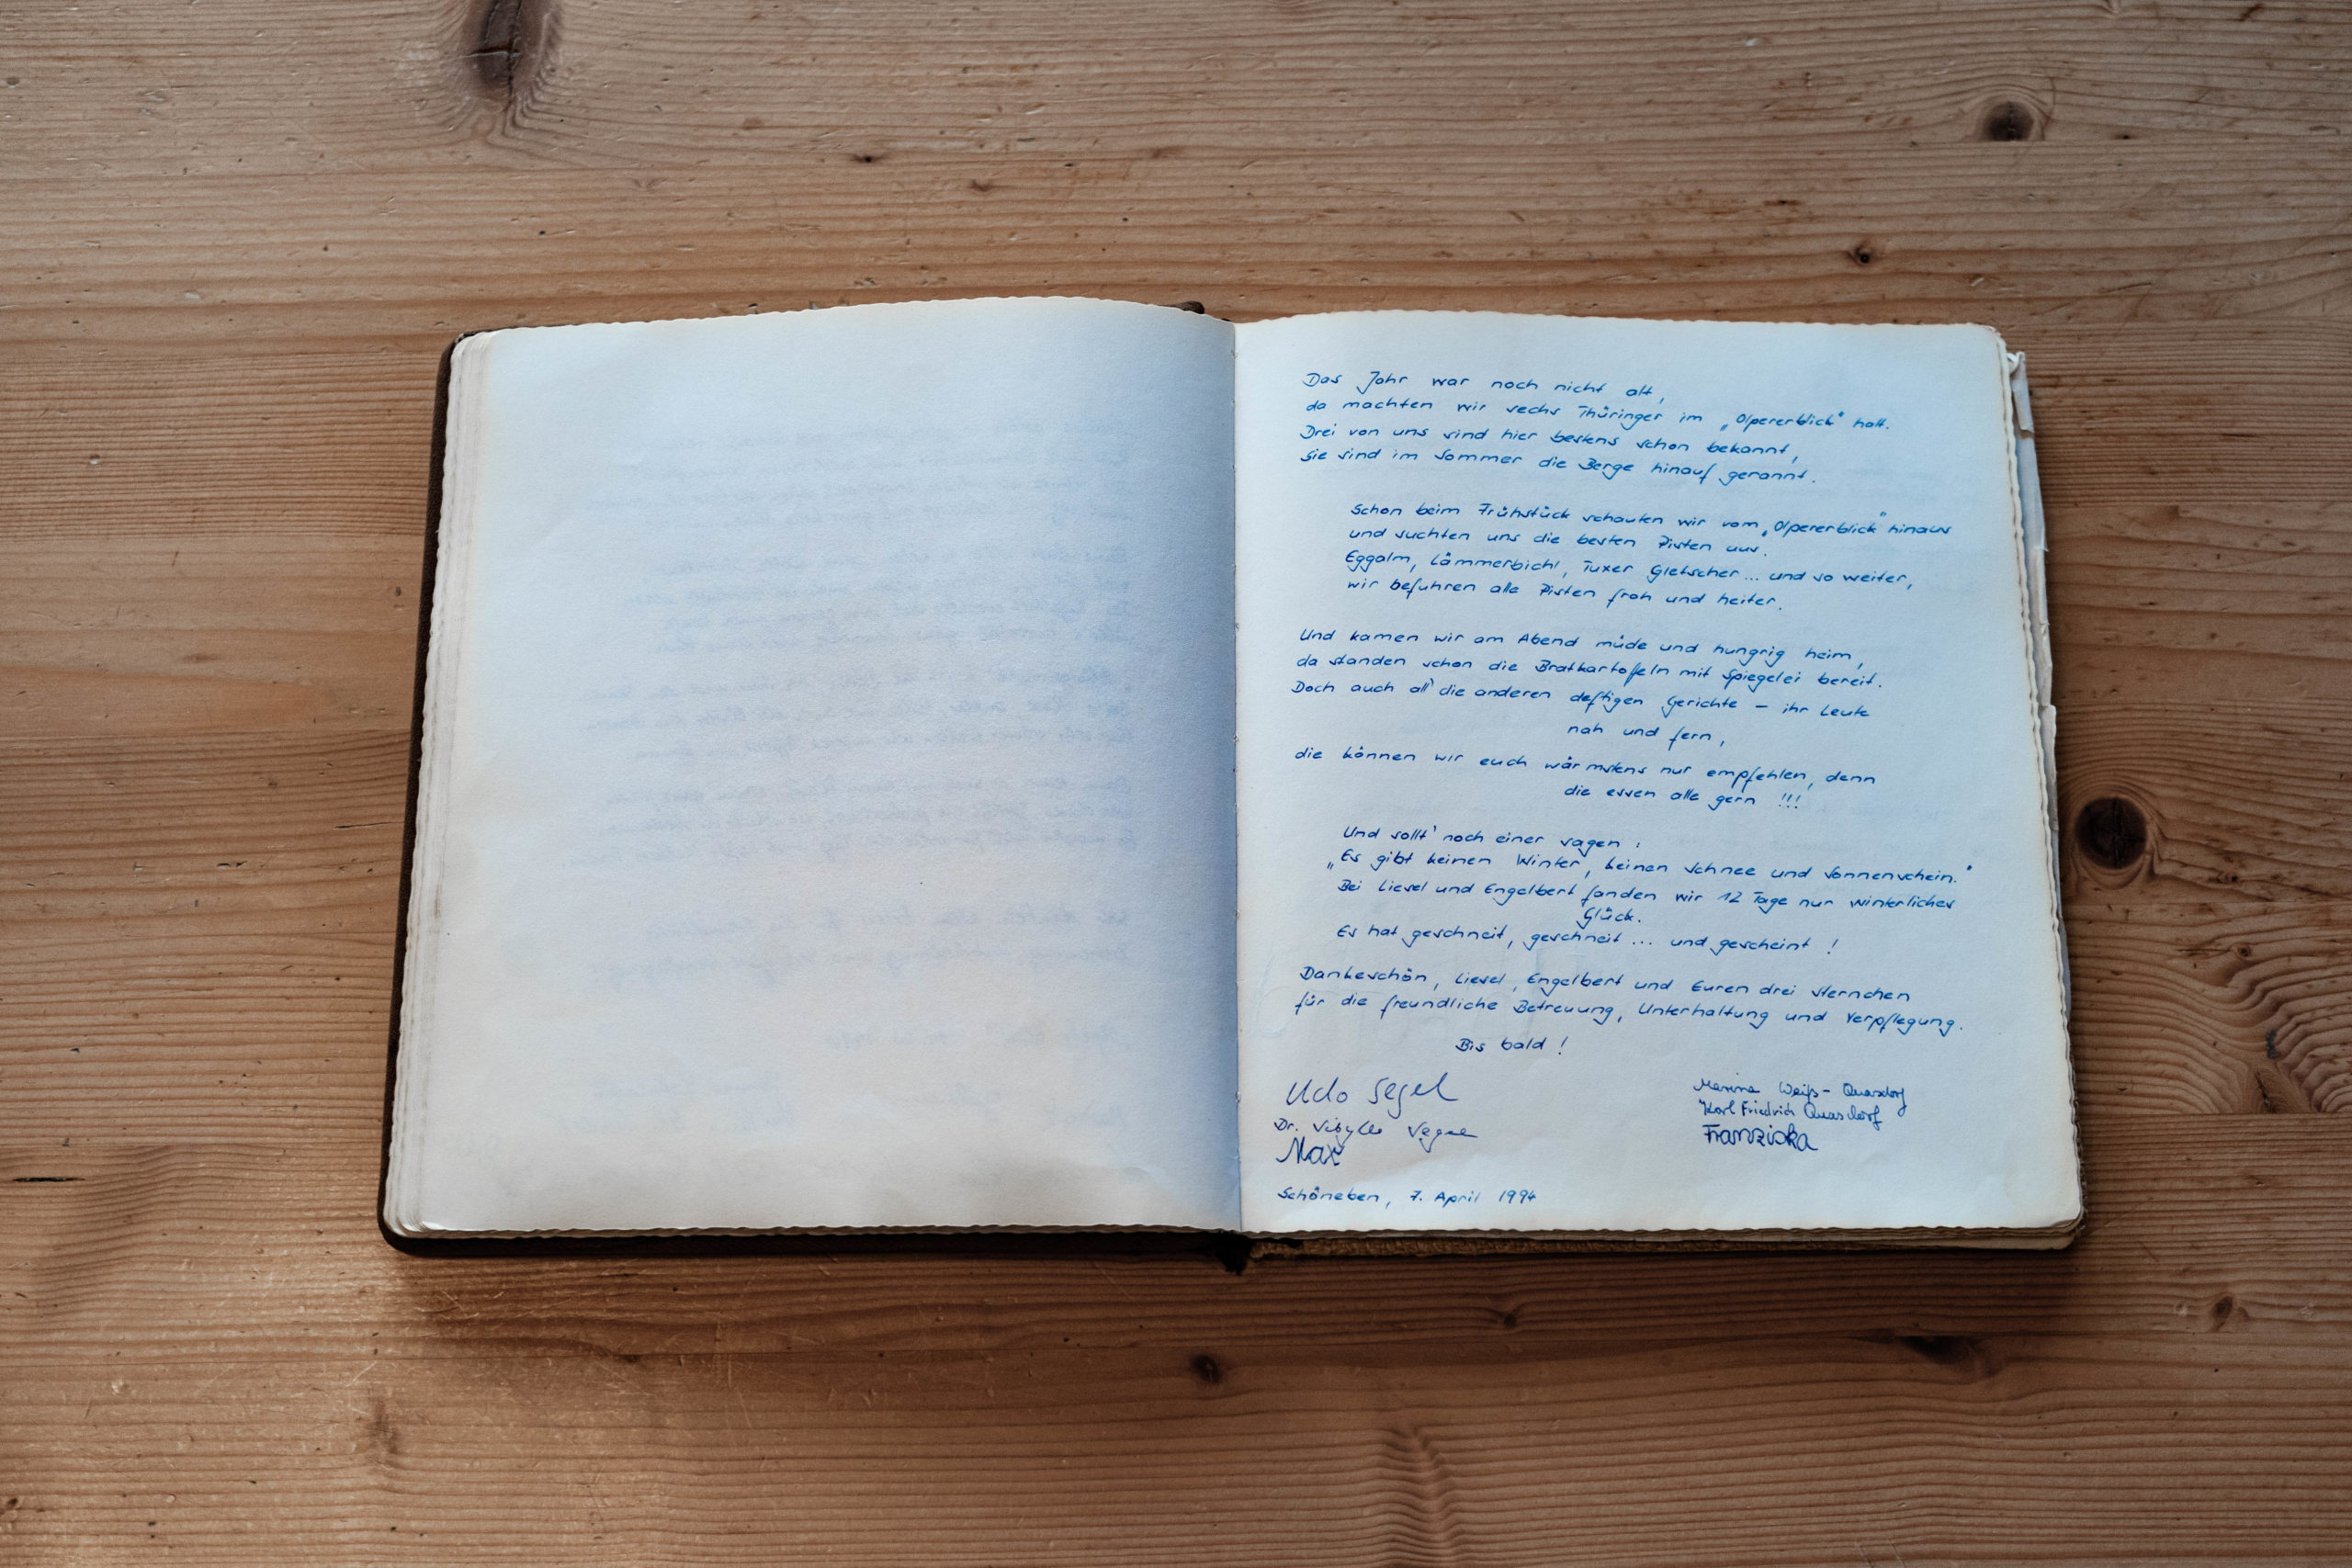 Das Jahr war noch nicht alt,
da machten wir sechs Thüringer im „Olpererblick" halt.
Drei von uns sind hier bestens schon bekannt,
sie sind im Sommer die Berge hinauf gerannt.
Schon beim Frühstück schauten wir vom „Olpererblick" hinaus
und suchten uns die besten Pisten aus.
Eggalm, Lämmerbichl, Tuxer Gletscher ... und so weiter,
wir befuhren alle Pisten froh und heiter.
Und kamen wir am Abend müde und hungrig heim,
da standen schon die Bratkartofeln mit Spiegelei bereit.
Doch auch all' die anderen deftigen Gerichte – ihr Leute
nah und fern,
die können wir euch wärmstens nur empfehlen, denn
die essen alle gern !!!
Und sollt' noch einer sagen :
„Es gibt keinen Winter, keinen Schnee und Sonnenschein."
Bei Liesel und Engelbert fanden wir 12 Tage nur winterliches
Glück.
Es hat geschneit, geschneit ... und gescheint !
Dankeschön, Liesel, Engelbert und Euren drei Sternchen
für die freundliche Betreuung, Unterhaltung und Verpflegung.
Bis bald !
Udo Segel
Dr. Sibylle
Max
Marina Weiß-Quasdorf
Karl Friedrich Quasdorf
Franziska
Schöneben, 7. April 1994